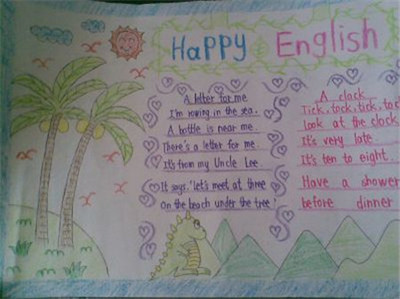 Happy English
A letter for me
I'm rowing in the sea.
A bottle is near me.
There's a letter for me.
It's from my Uncle Lee.
It says, "let's meet at three
On the beach under the tree."
A clock
Tick, tock, tick, tock
Look at the clock
It's very late
It's ten to eight.
Have a shower
before dinner